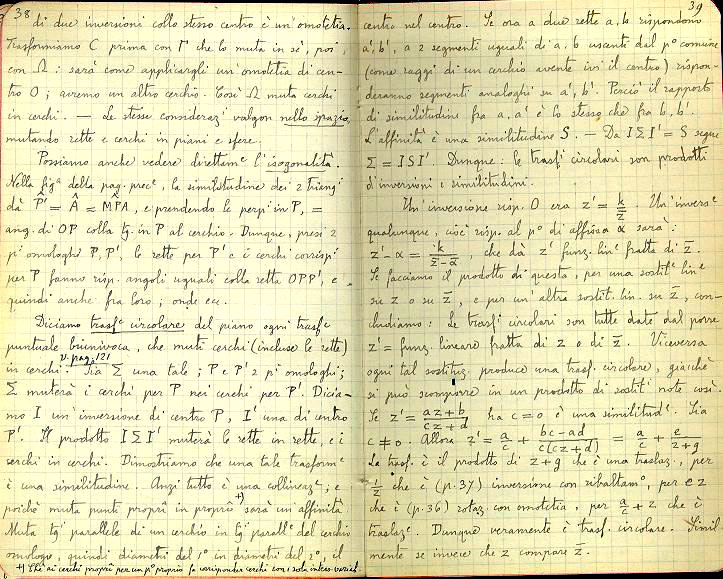 38
di due inversioni collo stesso centro è un'omotetia.
Trasformiamo C prima con Γ che lo muta in sè, poi,
con Ω: sarà come applicargli un omotetia di cen-
tro O; avremo un altro cerchio. Così Ω muta cerchi
in cerchi. — Le stesse consideraz' valgon nello spazio,
mutando rette e cerchi in piani e sfere.
Possiamo anche vedere direttamᵉ l'isogonalità.
Nella figᵃ della pag. precᵉ, la similitudine dei 2 triangⁱ
dà P̂' = Â = MP̂A, e prendendo le perpⁱ in P, =
ang. di OP colla tg. in P al cerchio. Dunque, presi 2
pⁱ omologhi P, P', le rette per P' e i cerchi corrispⁱ
per P fanno risp. angoli uguali colla retta OPP', e
quindi anche fra loro; onde ecc.
Diciamo trasfᵉ circolare del piano ogni trasfᵉ
puntuale biunivoca, che muti cerchi (incluse le rette)
in cerchi. Sia Σ una tale; P e P' 2 pⁱ omologhi;
v. pag. 121
Σ muterà i cerchi per P nei cerchi per P'. Dicia-
mo I un'inversione di centro P, I' una di centro
P'. Il prodotto IΣI' muterà le rette in rette, e i
cerchi in cerchi. Dimostriamo che una tale trasformᵉ
è una similitudine. Anzi tutto è una collineazᵉ; e
poichè muta punti propri in propri +) sarà un'affinità.
Muta tgⁱ parallele di un cerchio in tgⁱ parallᵉ del cerchio
omologo, quindi diametri del 1º in diametri del 2º, il
+) Chè ai cerchi proprii per un pº proprio fa corrisponder cerchi con 1 sola inters.
39
centro nel centro. Se ora a due rette a, b rispondono
a', b', a 2 segmenti uguali di a, b uscenti dal pº comune
(come raggi di un cerchio avente ivi il centro) rispon-
deranno segmenti analoghi su a', b'. Perciò il rapporto
di similitudine fra a, a' è lo stesso che fra b, b'.
L'affinità è una similitudine S. — Da IΣI' = S segue
Σ = ISI'. Dunque: le trasfⁱ circolari son prodotti
d'inversioni e similitudini.
Un'inversione risp. O era z' = k/z̄. Un'inversᵉ
qualunque, cioè risp. al pº di affissa α sarà:
z' - α = k/(z̄ - ᾱ), che dà z' funz. linᵉ fratta di z̄.
Se facciamo il prodotto di questa, per una sostitᵉ linᵉ
su z o su z̄, e per un'altra sostit. lin. su z̄, con-
chiudiamo: Le trasfⁱ circolari son tutte date dal porre
z' = funz. lineare fratta di z o di z̄. Viceversa
ogni tal sostituz. produce una trasf. circolare, giacchè
si può scomporre in un prodotto di sostitⁱ note così.
Se z' = (az+b)/(cz+d) ha c=0 è una similitudᵉ. Sia
c≠0. Allora z' = a/c + (bc-ad)/(c(cz+d)) = a/c + e/(z+g)
La trasf. è il prodotto di z+g che è una traslaz., per
1/z che è (p. 37) inversione con ribaltamº, per ez
che è (p. 36) rotaz. con omotetia, per a/c + z che è
traslazᵉ. Dunque veramente è trasf. circolare. Simil-
mente se invece che z compare z̄.